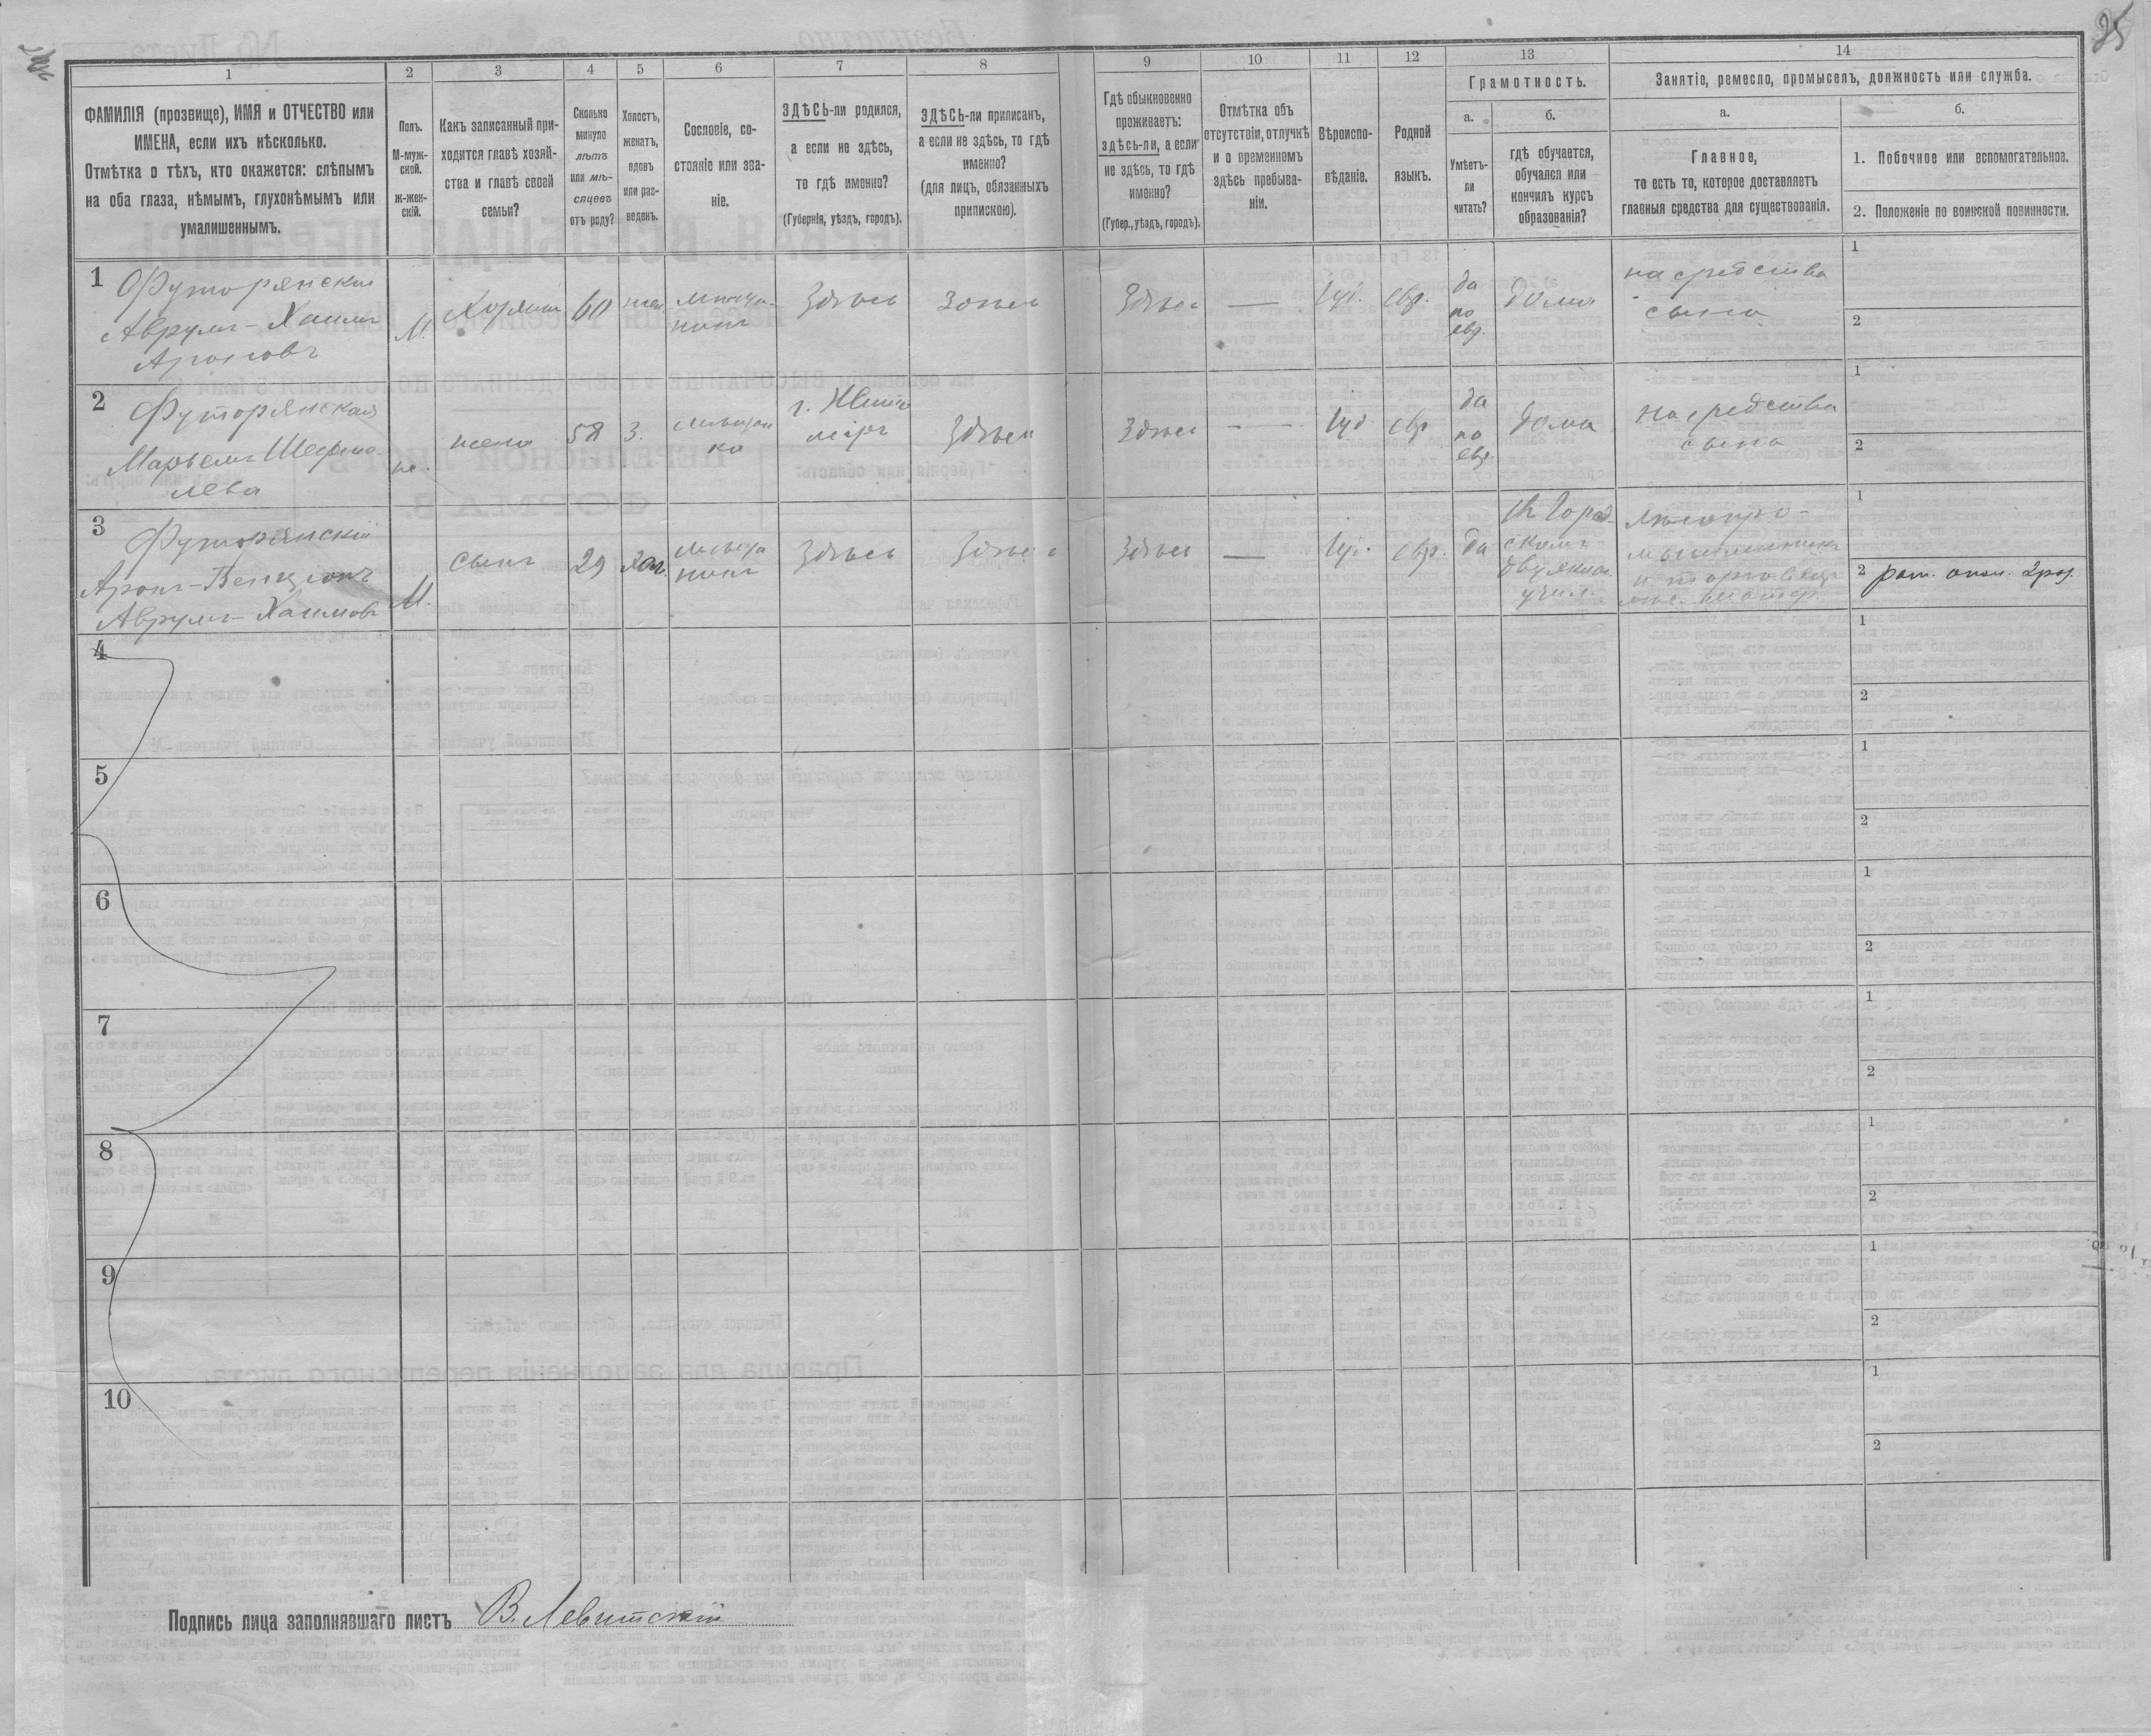 25
1
2
3
4
5
6
7
8
9
10
11
12
13
14
ФАМИЛІЯ (прозвище), ИМЯ и ОТЧЕСТВО или
ИМЕНА, если ихъ нѣсколько.
Отмѣтка о тѣхъ, кто окажется: слѣпымъ
на оба глаза, нѣмымъ, глухонѣмымъ или
умалишеннымъ.
Полъ.
М-муж-
ской.
ж-жен-
скій.
Какъ записанный при-
ходится главѣ хозяй-
ства и главѣ своей
семьи?
Сколько
минуло
лѣтъ
или мѣ-
сяцевъ
отъ роду?
Холостъ,
женатъ,
вдовъ
или раз-
веденъ.
Сословіе, со-
стояніе или зва-
ніе.
ЗДѢСЬ-ли родился,
а если не здѣсь,
то гдѣ именно?
(Губернія, уѣздъ, городъ).
ЗДѢСЬ-ли приписанъ,
а если не здѣсь, то гдѣ
именно?
(для лицъ, обязанныхъ
припискою).
Гдѣ обыкновенно
проживаетъ:
здѣсь-ли, а если
не здѣсь, то гдѣ
именно?
(Губер., уѣздъ, городъ).
Отмѣтка объ
отсутствіи, отлучкѣ
и о временномъ
здѣсь пребыва-
ніи.
Вѣроиспо-
вѣданіе.
Родной
языкъ.
Грамотность.
а.
Умѣетъ-
ли
читать?
б.
гдѣ обучается,
обучался или
кончилъ курсъ
образованія?
Занятіе, ремесло, промыселъ, должность или служба.
а.
Главное,
то есть то, которое доставляетъ
главныя средства для существованія.
б.
1. Побочное или вспомогательное.
2. Положеніе по воинской повинности.
1
Футорянскій
Аврумъ-Хаимъ
Ароновъ
М.
Хозяинъ
60
жен.
мѣща-
нинъ
Здѣсь
Здѣсь
Здѣсь
—
Іуд.
евр.
да
по
евр.
дома
на средства
сына
1
2
2
Футорянская
Марьемъ
лева
ж.
жена
58
З.
мѣщан
ка
г. Жито
міръ
Здѣсь
Здѣсь
— —
Іуд
евр
да
по
евр
дома
На средства
сына
1
2
3
Футорянскій
Аронъ-Бенціонъ
Аврумъ-Хаимовъ
М.
сынъ
29
хол.
мѣща
нинъ
Здѣсь
Здѣсь
Здѣсь
—
Іуд.
евр.
да
въ Город-
скомъ
двуклас.
учил.
Лѣсопро-
мышленникъ
и торговец
1
2 рат. опол. 2 раз.
4
1
2
5
1
2
6
1
2
7
1
2
8
1
2
9
1
2
10
1
2
Подпись лица заполнявшаго листъ В. Левитскій